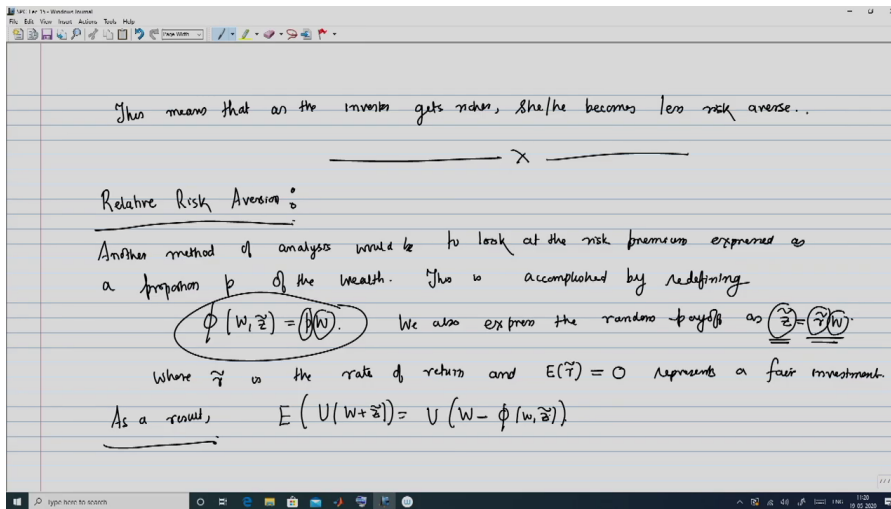 File Edit View Insert Actions Tools Help
Page Width
This means that as the investor gets richer, she/he becomes less risk averse..
X
Relative Risk Aversion :
Another method of analysis would be to look at the risk premium expressed as
a proportion p of the wealth. This is accomplished by redefining
ϕ (W, z̃) = pW. We also express the random payoff as z̃ = r̃ W.
Where r̃ is the rate of return and E(r̃) = 0 represents a fair investment.
As a result, E ( U( W+z̃)) = U ( W - ϕ (W, z̃))
Type here to search
ENG 11:20